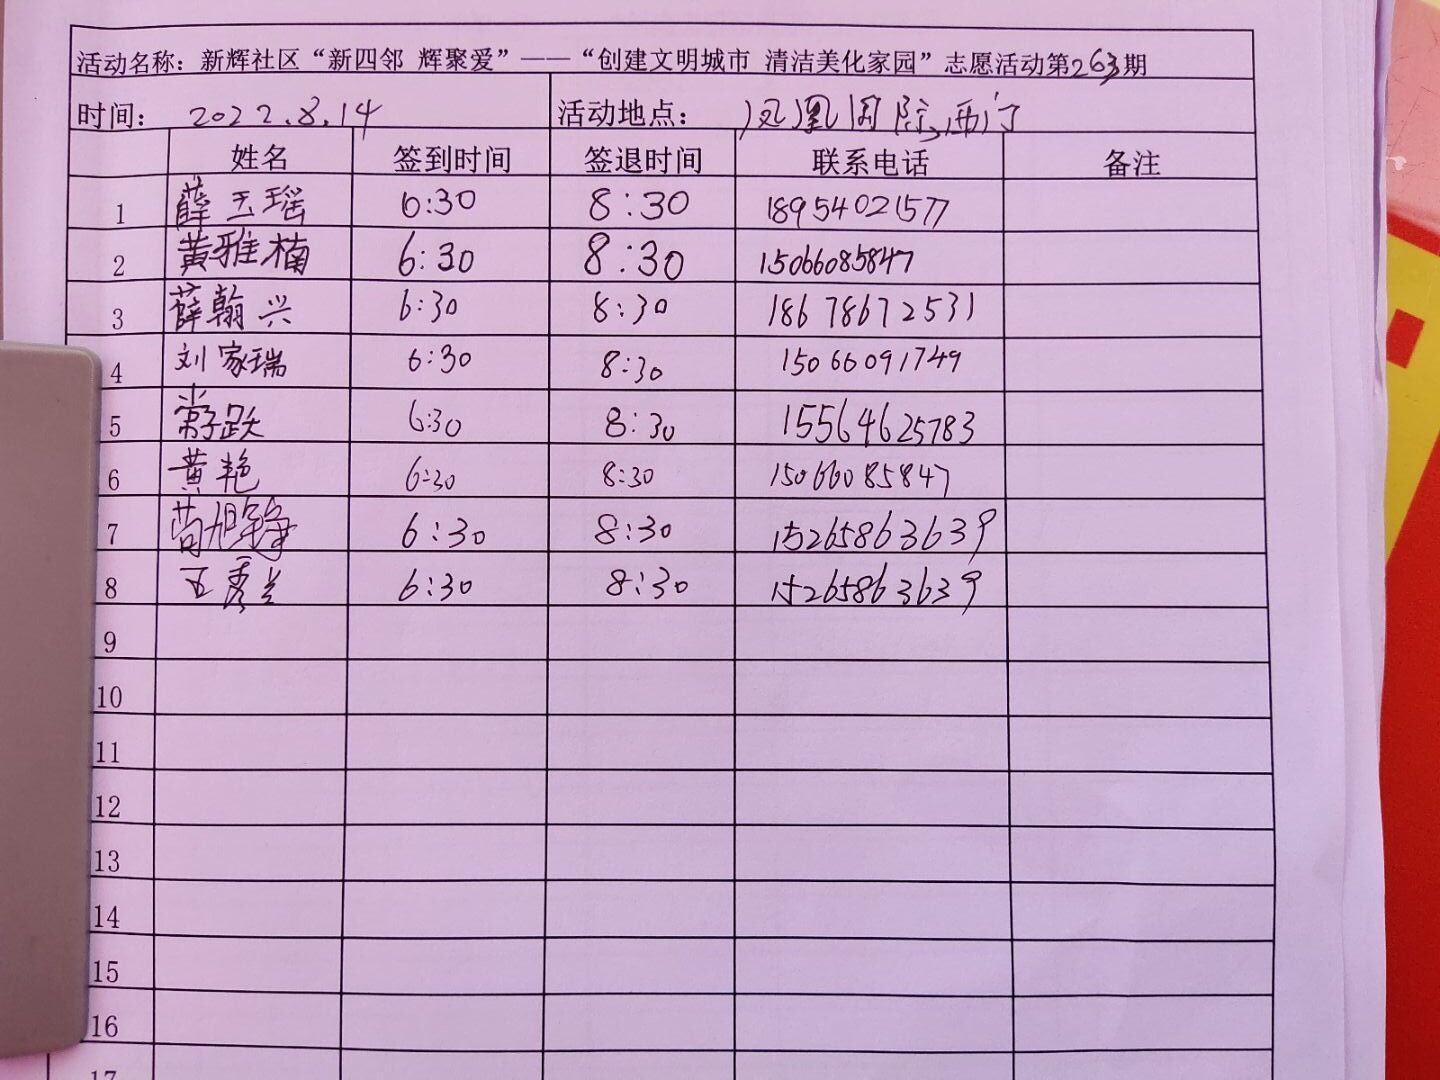 活动名称：新辉社区“新四邻 辉聚爱”——“创建文明城市 清洁美化家园”志愿活动第263期
时间： 2022.8.14 活动地点： 凤凰国际西门
姓名 签到时间 签退时间 联系电话 备注
1 薛玉瑶 6:30 8:30 18954021577
2 黄雅楠 6:30 8:30 15066085847
3 薛翰兴 6:30 8:30 18678672531
4 刘家瑞 6:30 8:30 15066091749
5 常跃 6:30 8:30 15564625783
6 黄艳 6:30 8:30 15066085847
7 6:30 8:30 15265863639
8 王秀兰 6:30 8:30 15265863639
9
10
11
12
13
14
15
16
17